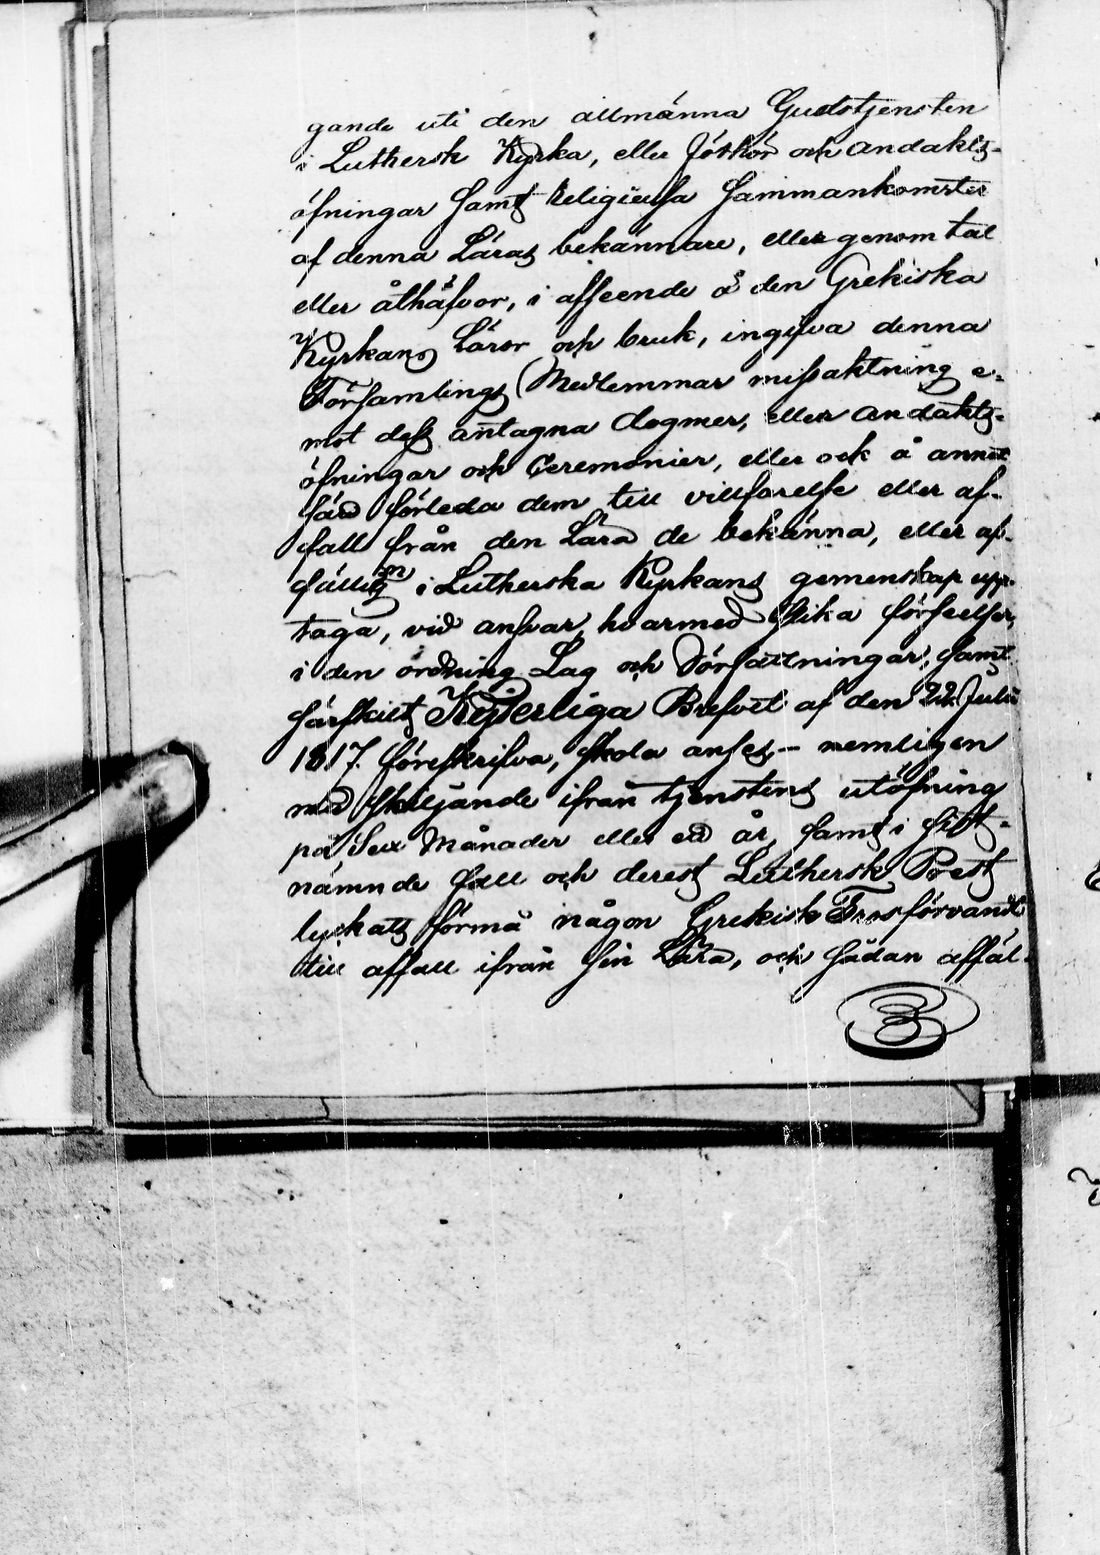 gande uti den allmänna Gudstjensten
i Luthersk Kyrka, eller förhör och andakts-
öfningar samt Religieusa sammankomster
af denna Läras bekännare, eller genom tal
eller åthäfvor, i afseende å den Grekiska
Kyrkans Läror och bruk, ingifva denna
Församlings Medlemmar missaktning e-
mot dess antagna dogmer, eller andakts-
öfningar och Ceremonier, eller ock å annat
sätt förleda dem till villfarelse eller af-
fall från den Lära de bekänna, eller af-
fälling i Lutherska Kyrkans gemenskap upp-
taga, vid ansvar, hvarmed slika förseelser,
i den ordning Lag och Författningar, samt
särskilt Kejserliga Brefvet af den 22 Julii
1817. föreskrifva, skola anses – nemligen
med skiljande ifrån tjenstens utöfning
på Sex Månader eller ett år, samt i sist-
nämnde fall och derest Luthersk Prest
lyckats förmå någon Grekisk Trosförvandt
till affall ifrån sin Lära, och sådan affäl-